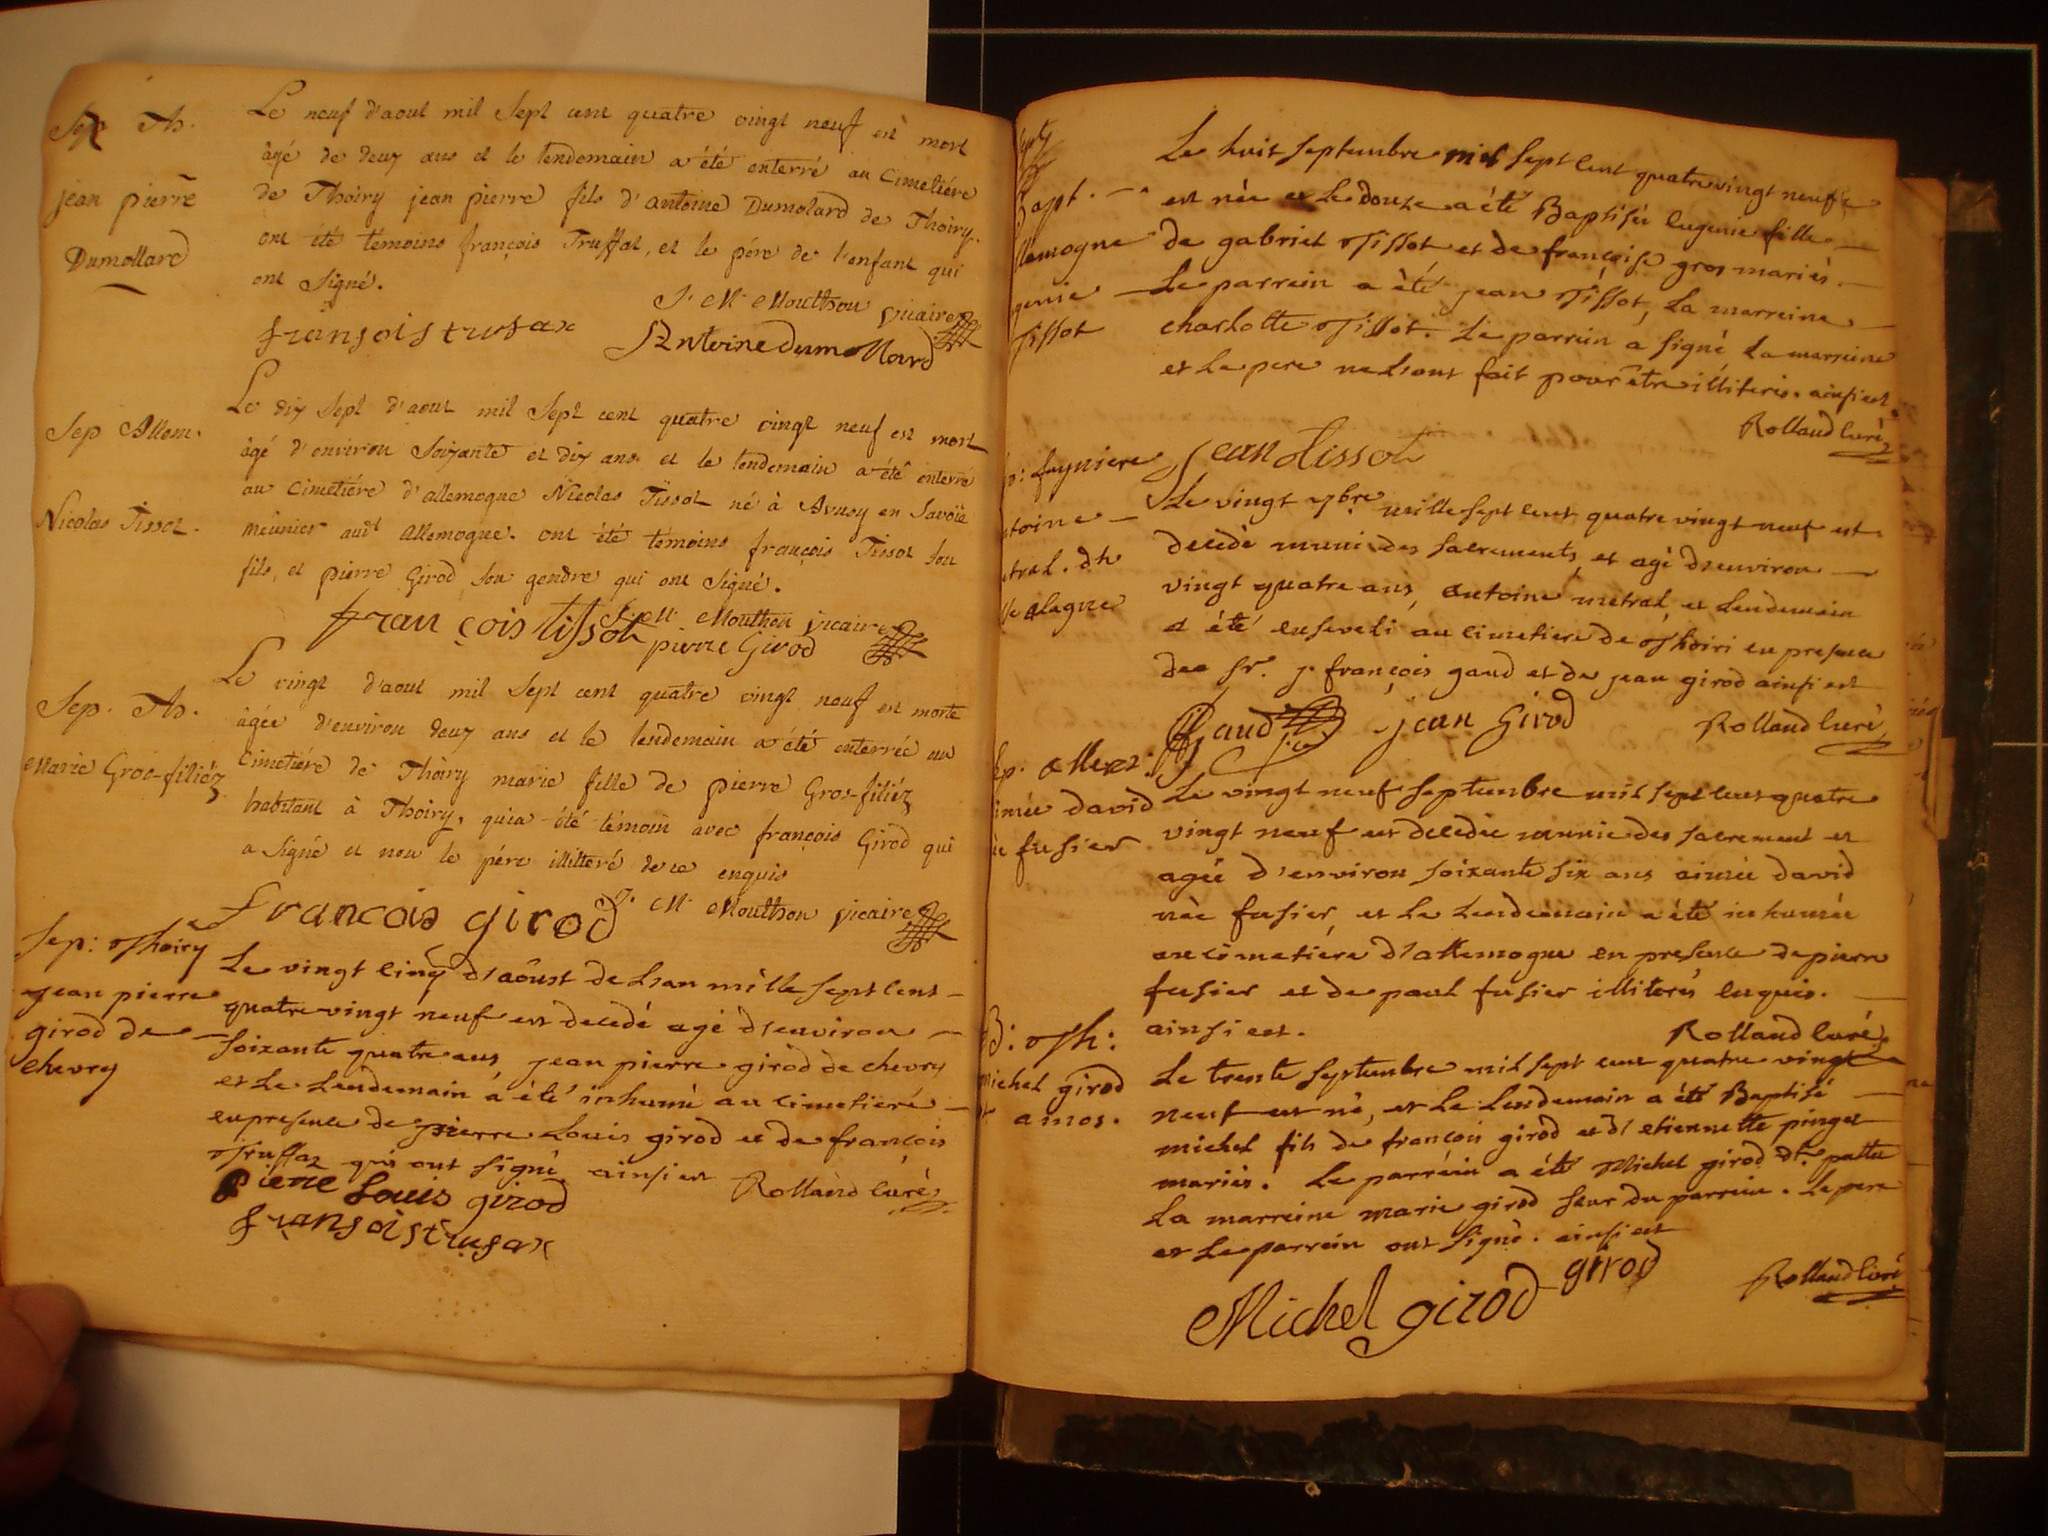 Sep Th.
jean pierre
Dumollard
Le neuf d'aout mil Sept cent quatre vingt neuf est mort
âgé de deux ans et le lendemain a été enterré au Cimetiére
de Thoiry jean pierre fils d'antoine Dumolard de Thoiry.
ont été témoins françois Truffat, et le pére de l'enfant qui
ont signé.
J. M. Mouthon vicaire
fransois trufax
Antoine dumollard
Sep Allem.
Nicolas Tissot.
Le dix Sept d'aout mil Sept cent quatre vingt neuf est mort
âgé d'environ Soixante et dix ans et le lendemain a été enterré
au Cimetiére d'allemogne Nicolas Tissot né à Arusy en Savoïe
meûnier audt allemogne. ont été témoins françois Tissot son
fils, et pierre Girod son gendre qui ont signé.
J. M. Mouthon vicaire
françois tissot
pierre Girod
Sep. Th.
Marie Gros-filiéz
Le vingt d'aout mil Sept cent quatre vingt neuf est morte
âgée d'environ deux ans et le lendemain a été enterrée au
Cimetiére de Thoiry marie fille de pierre Gros-filiéz
habitant à Thoiry, qui a été témoin avec françois Girod qui
a signé et non le pére illitteré de ce enquis
J. M. Mouthon vicaire
francois girod
Sep: Thoiry
jean pierre
girod de
chevry
Le vingt cinq d'aôust de l'an mille sept cent
quatre vingt neuf est decedé agé d'environ
soixante quatre ans, jean pierre girod de chevry
et le lendemain a été inhumé au cimetieré
en presence de pierre Louis girod et de françois
Truffaz qui ont signé ainsi est Rolland curé
pierre Louis girod
fransois trufax
Bapt.
llemogne
genie
Tissot
Le huit septembre mil sept cent quatrevingt neuf
est née et le douze a été Baptisée eugenie fille
de gabriel Tissot et de françoise gros mariés.
Le parrein a été jean Tissot, la marreine
charlotte Tissot. Le parrein a signé la marreine
et le pere ne l'ont fait pour être illiterés. ainsi est
Rolland curé
jean tissot
p: fayniere
ntoine
tral. dt
Le vingt 7bre mille sept cent quatre vingt neuf est
decedé muni des sacrements, et agé d'environ
vingt quatre ans, antoine metral, et lendemain
a été enseveli au cimetiere de Thoiri en presence
des sr. j. françois gaud et de jean girod ainsi est
Gaud jean Girod Rolland curé
ep. allem:
imée david
ée fusier
Le vingt neuf septembre mil sept cens quatre
vingt neuf est decedée munie des sacrement et
agée d'environ soixante six ans aimée david
née fusier, et le lendemain a été inhumée
au cimetiére d'allemogne en presence de pierre
fusier et de paul fusier illiterés enquis.
ainsi est. Rolland curé
B: Th:
michel girod
amos.
Le trente septembre mil sept cent quatre vingt
neuf est né, et le lendemain a été Baptisé
michel fils de françois girod et d'etiennette pinget
mariés. Le parréin a été Michel girod dt. pattu
la marreine marie girod seur du parrein. Le pere
et le parrein ont signé. ainsi est
girod Rolland curé
Michel girod